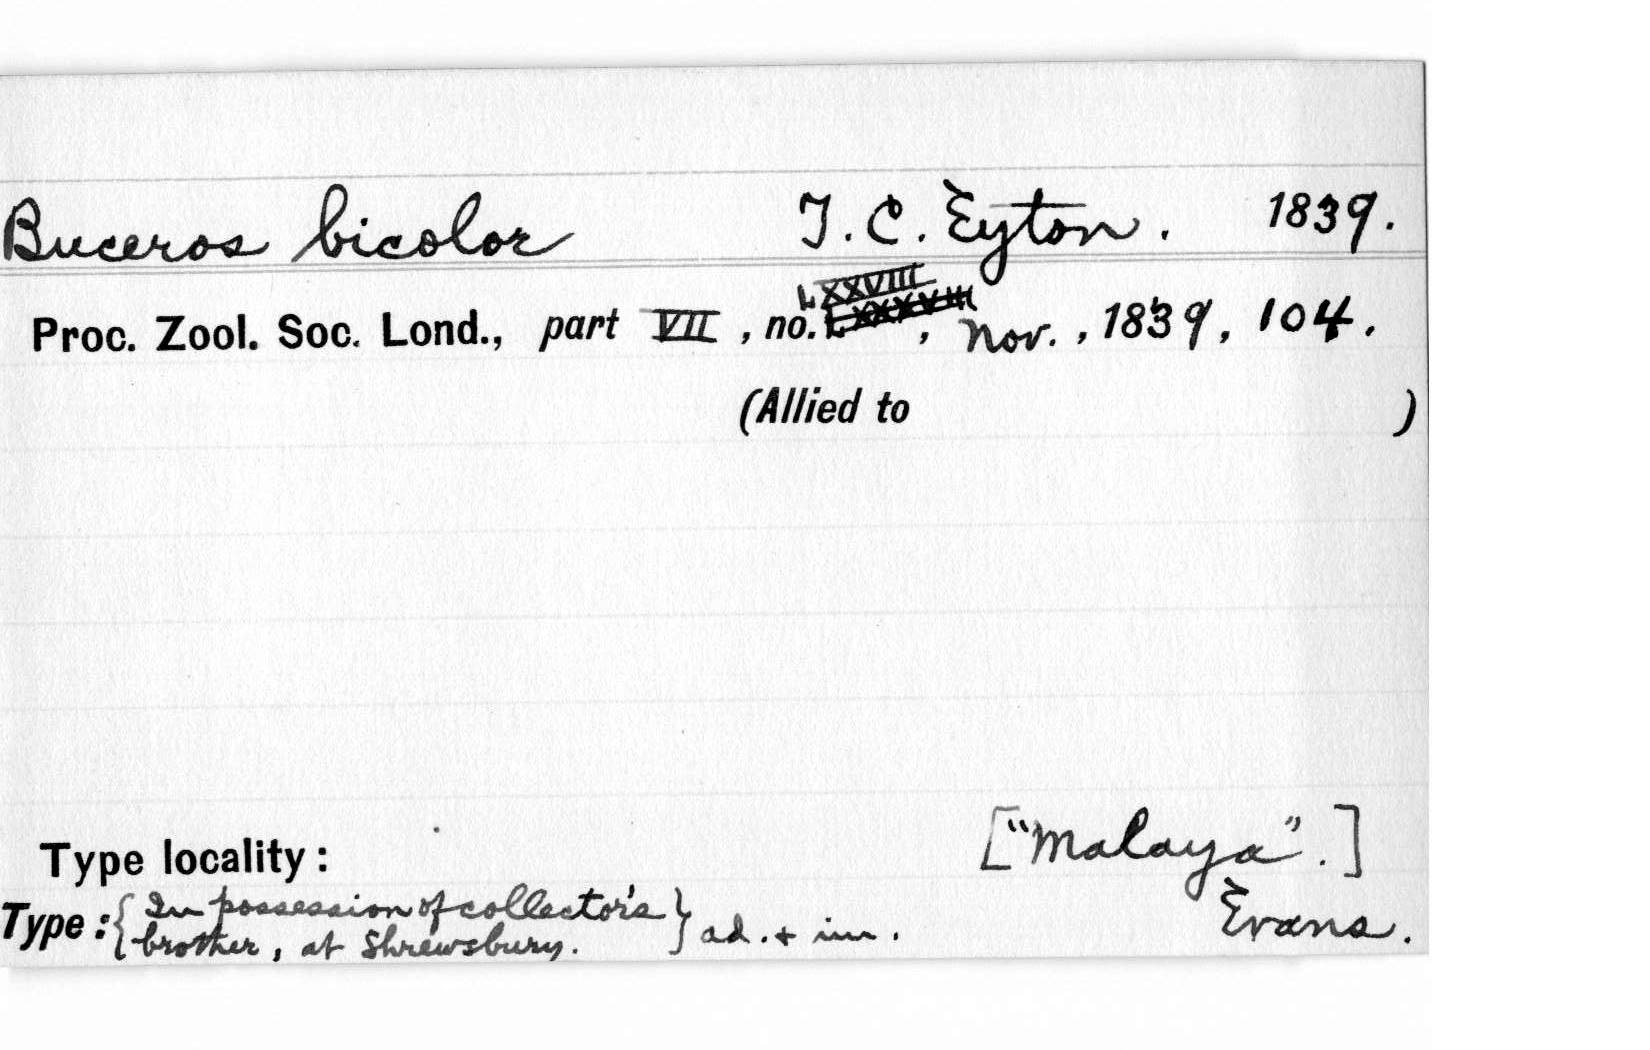 Buceros bicolor T. C. Eyton. 1839.
LXXVIII
Proc. Zool. Soc. Lond., part VII, no. LXXXVIII, Nov., 1839, 104.
(Allied to )
["Malaya".]
Type locality:
Evans.
Type: {In possession of collector's
brother, at Shrewsbury.} ad. + im.